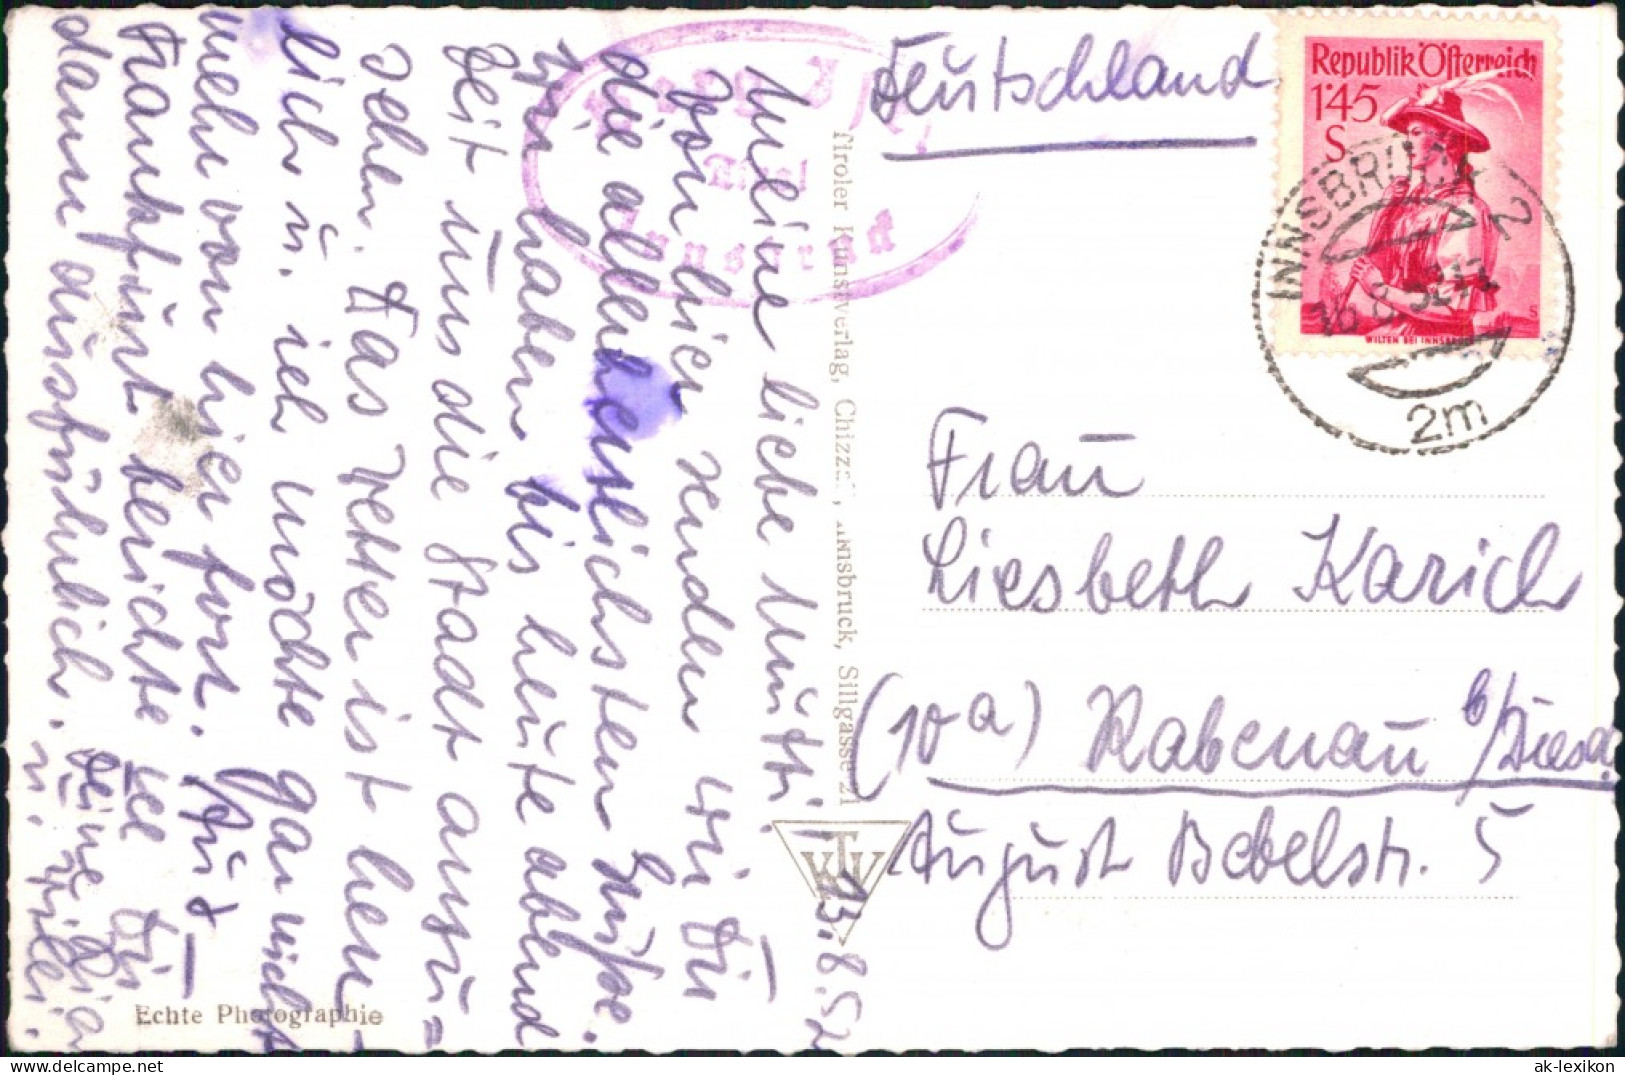 Deutschland
Republik Österreich
1'45
S
WILTEN BEI INNSBRUCK
INNSBRUCK 2
16.8.52
2m
Frau
Liesbeth Karich
(10a) Rabenau b/Diesd.
August Bebelstr. 5
Tiroler Kunstverlag, Chizzali, Innsbruck, Sillgasse 21
TKV
13.8.52
Meine liebe Mutti.
Von hier senden wir Dir
die allerherzlichsten Grüße.
Wir haben bis heute abend
Zeit uns die Stadt anzu=
sehen. Das Wetter ist herr=
lich u. ich möchte gar nicht
mehr von hier fort. Aus
Frankfurt berichte ich Dir
dann ausführlich.
Deine
u. Willi.
Echte Photographie
ak-lexikon